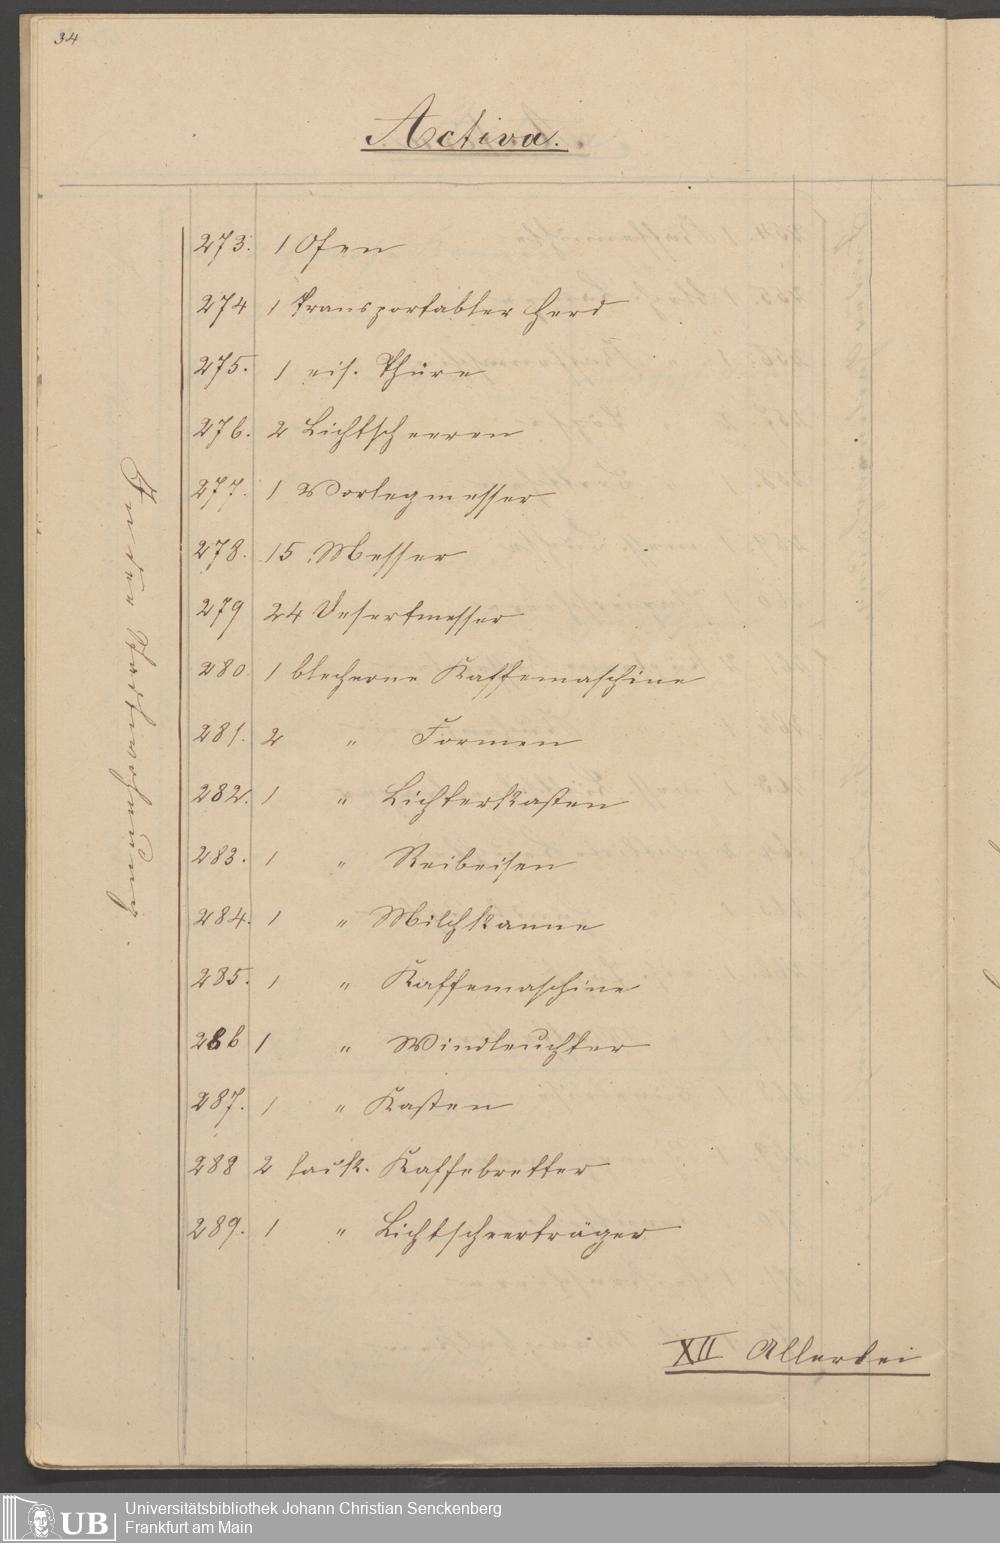 34
Activa.
In der Stadtwohnung.
273. 1 Ofen
274 1 transportabler Herd
275. 1 eis. Thüre
276. 2 Lichtscheeren
277. 1 Vorlegmesser
278. 15 Messer
279 24 Desertmesser
280. 1 blecherne Kaffemaschine
281. 2 " Formen
282. 1 " Lichterkasten
283. 1 " Reibeisen
284. 1 " Milchkanne
285. 1 " Kaffemaschine
286 1 " Windleuchter
287. 1 " Kasten
288 2 lack. Kaffebretter
289. 1 " Lichtscheerträger
XII Allerlei
UB Universitätsbibliothek Johann Christian Senckenberg
Frankfurt am Main